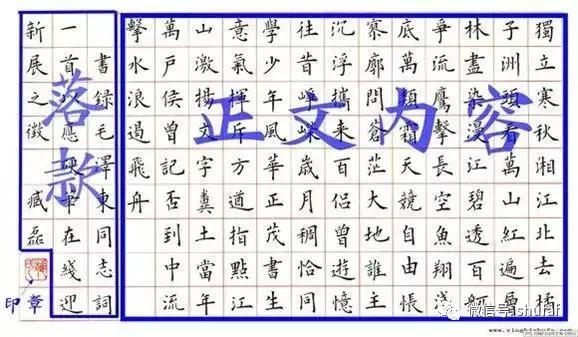 獨立寒秋湘江北去橘
子洲頭看萬山紅遍層
林盡染漫江碧透百舸
爭流鷹擊長空魚翔淺
底萬類霜天競自由悵
寥廓問蒼茫大地誰主
沉浮攜來百侶曾遊憶
往昔崢嶸歲月稠恰同
學少年風華正茂書生
意氣揮斥方遒指點江
山激揚文字糞土當年
萬戶侯曾記否到中流
擊水浪遏飛舟
書錄毛澤東同志詞
一首以應硬書在綫迎
新展之徵臧磊
正文内容
落款
印章
微信号